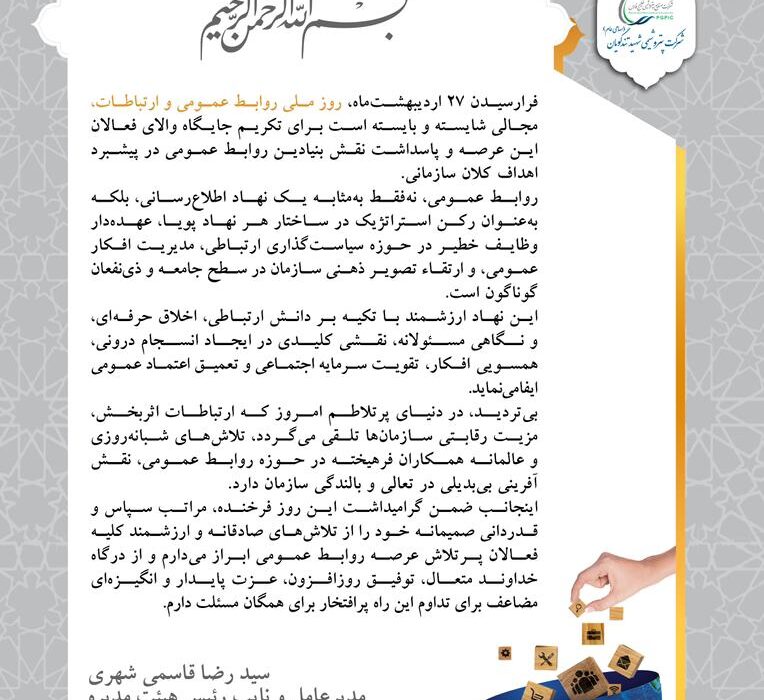 بسم الله الرحمن الرحیم
PGPIC
شرکت پتروشیمی شهید تندگویان
فرارسیدن ۲۷ اردیبهشت‌ماه، روز ملی روابط عمومی و ارتباطات،
مجالی شایسته و بایسته است برای تکریم جایگاه والای فعالان
این عرصه و پاسداشت نقش بنیادین روابط عمومی در پیشبرد
اهداف کلان سازمانی.
روابط عمومی، نه‌فقط به‌مثابه یک نهاد اطلاع‌رسانی، بلکه
به‌عنوان رکن استراتژیک در ساختار هر نهاد پویا، عهده‌دار
وظایف خطیر در حوزه سیاست‌گذاری ارتباطی، مدیریت افکار
عمومی، و ارتقاء تصویر ذهنی سازمان در سطح جامعه و ذی‌نفعان
گوناگون است.
این نهاد ارزشمند با تکیه بر دانش ارتباطی، اخلاق حرفه‌ای،
و نگاهی مسئولانه، نقشی کلیدی در ایجاد انسجام درونی،
همسویی افکار، تقویت سرمایه اجتماعی و تعمیق اعتماد عمومی
ایفامی‌نماید.
بی‌تردید، در دنیای پرتلاطم امروز که ارتباطات اثربخش،
مزیت رقابتی سازمان‌ها تلقی می‌گردد، تلاش‌های شبانه‌روزی
و عالمانه همکاران فرهیخته در حوزه روابط عمومی، نقش
آفرینی بی‌بدیلی در تعالی و بالندگی سازمان دارد.
اینجانب ضمن گرامیداشت این روز فرخنده، مراتب سپاس و
قدردانی صمیمانه خود را از تلاش‌های صادقانه و ارزشمند کلیه
فعالان پرتلاش عرصه روابط عمومی ابراز می‌دارم و از درگاه
خداوند متعال، توفیق روزافزون، عزت پایدار و انگیزه‌ای
مضاعف برای تداوم این راه پرافتخار برای همگان مسئلت دارم.
سید رضا قاسمی شهری
مدیرعامل و نایب رئیس هیئت مدیره